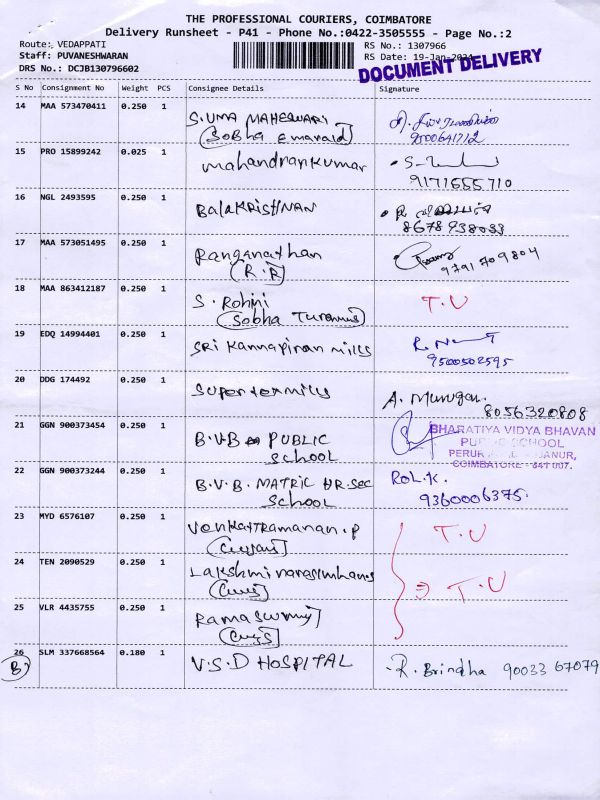 THE PROFESSIONAL COURIERS, COIMBATORE
Delivery Runsheet - P41 - Phone No.:0422-3505555 - Page No.:2
Route: VEDAPPATI
RS No.: 1307966
Staff: PUVANESHWARAN
RS Date: 19-Jan-2024
DRS No.: DCJB130796602
DOCUMENT DELIVERY
S No Consignment No Weight PCS Consignee Details Signature
14 MAA 573470411 0.250 1 S.UMA MAHESWARI
(Sobha Emarald)
9500641712
15 PRO 15899242 0.025 1 Mahandrankumar
9171555710
16 NGL 2493595 0.250 1 BalaKRISHNAN
8678938033
17 MAA 573051495 0.250 1 Ranganathan
(R.R) 9791709804
18 MAA 863412187 0.250 1 S. Rohini T.U
(Sobha Turannus)
19 EDQ 14994401 0.250 1 SRI Kannapiran mills
9500502595
20 DDG 174492 0.250 1 Supertexmills A. Murugan.
8056320808
21 GGN 900373454 0.250 1 B.V.B PUBLIC BHARATIYA VIDYA BHAVAN
school PUBLIC SCHOOL
PERUR
COIMBATORE - 641 007.
22 GGN 900373244 0.250 1 B.V.B. MATRIC HR.Sec
School 9360006375
23 MYD 6576107 0.250 1 Venkattramanan.P T.U
24 TEN 2090529 0.250 1 Lakshminarasimhan.S T.U
25 VLR 4435755 0.250 1 Ramaswamy
26 SLM 337668564 0.180 1 V.S.D HOSPITAL R. Brindha 90033 67079
B